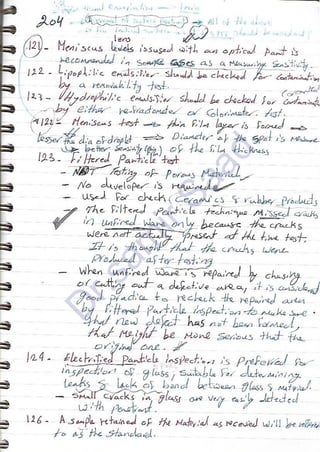 204
lens
121 - Meniscus levels issused with an optical pant is
recommended in some cases as a measuring sensitivity.
122 - Lipophilic emulsifier should be checked for contamination
by a removability test.
123 - Hydrophilic emulsifier should be checked for
by either refractometer or Colorimeter test.
122 - Meniscus test → thin film layer is formed →
lesser the dia of droplet → Diameter of the spot is measure
better sensitivity of the film thickness
123 - Filtered Particle test
- NOT Testing of Porous Material
- No developer is required
- Used for check (Ceramics & rubber products
- The Filtered Particle technique Missed cracks
in unfired ware only because the cracks
were not actually present at the time test.
It is thought that the cracks were
Produced after testing
- When unfired ware is repaired by chasing
or cutting out a defective area, it is considered
good practice to recheck the repaired area
by filtered Particle inspection to make sure
that new defect has not been formed,
that might be more serious that the
original one.
124 - Electrified Particle Inspection is preferred for
inspection of glass; suitable for determining
leaks & lack of bond between glass & material.
- Small cracks in glass are very easily detected
with
126 - A sample retained of the Material as received will be referred
to as the standard.